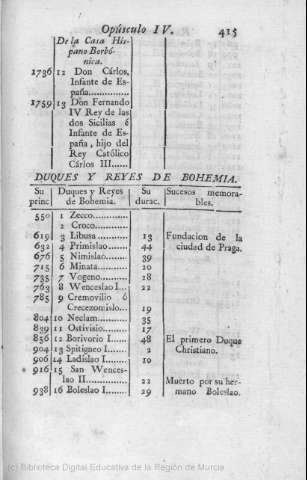 Opúsculo IV. 415
De la Casa His-
pano Borbó-
nica.
1736 12 Don Cárlos,
Infante de Es-
paña............
1759 13 Don Fernando
IV Rey de las
dos Sicilias é
Infante de Es-
paña, hijo del
Rey Católico
Cárlos III......
DUQUES Y REYES DE BOHEMIA.
Su princ Duques y Reyes de Bohemia. Su durac. Sucesos memora-
bles.
550 1 Zecco............
2 Croco............
619 3 Libusa............ 13 Fundacion de la
632 4 Primislao......... 44 ciudad de Praga.
676 5 Nimislao......... 39
715 6 Minata............ 20
735 7 Vogeno............ 28
763 8 Wenceslao I... 22
785 9 Cremovilio ó
Crecezomislo... 19
804 10 Neclam............ 35
839 11 Ostivisio......... 17
856 12 Borivorio I...... 48 El primero Duque
904 13 Spitigneo I...... 2 Christiano.
906 14 Ladislao I...... 10
916 15 San Wences-
lao II............ 22 Muerto por su her-
938 16 Boleslao I...... 29 mano Boleslao.
(c) Biblioteca Digital Educativa de la Región de Murcia